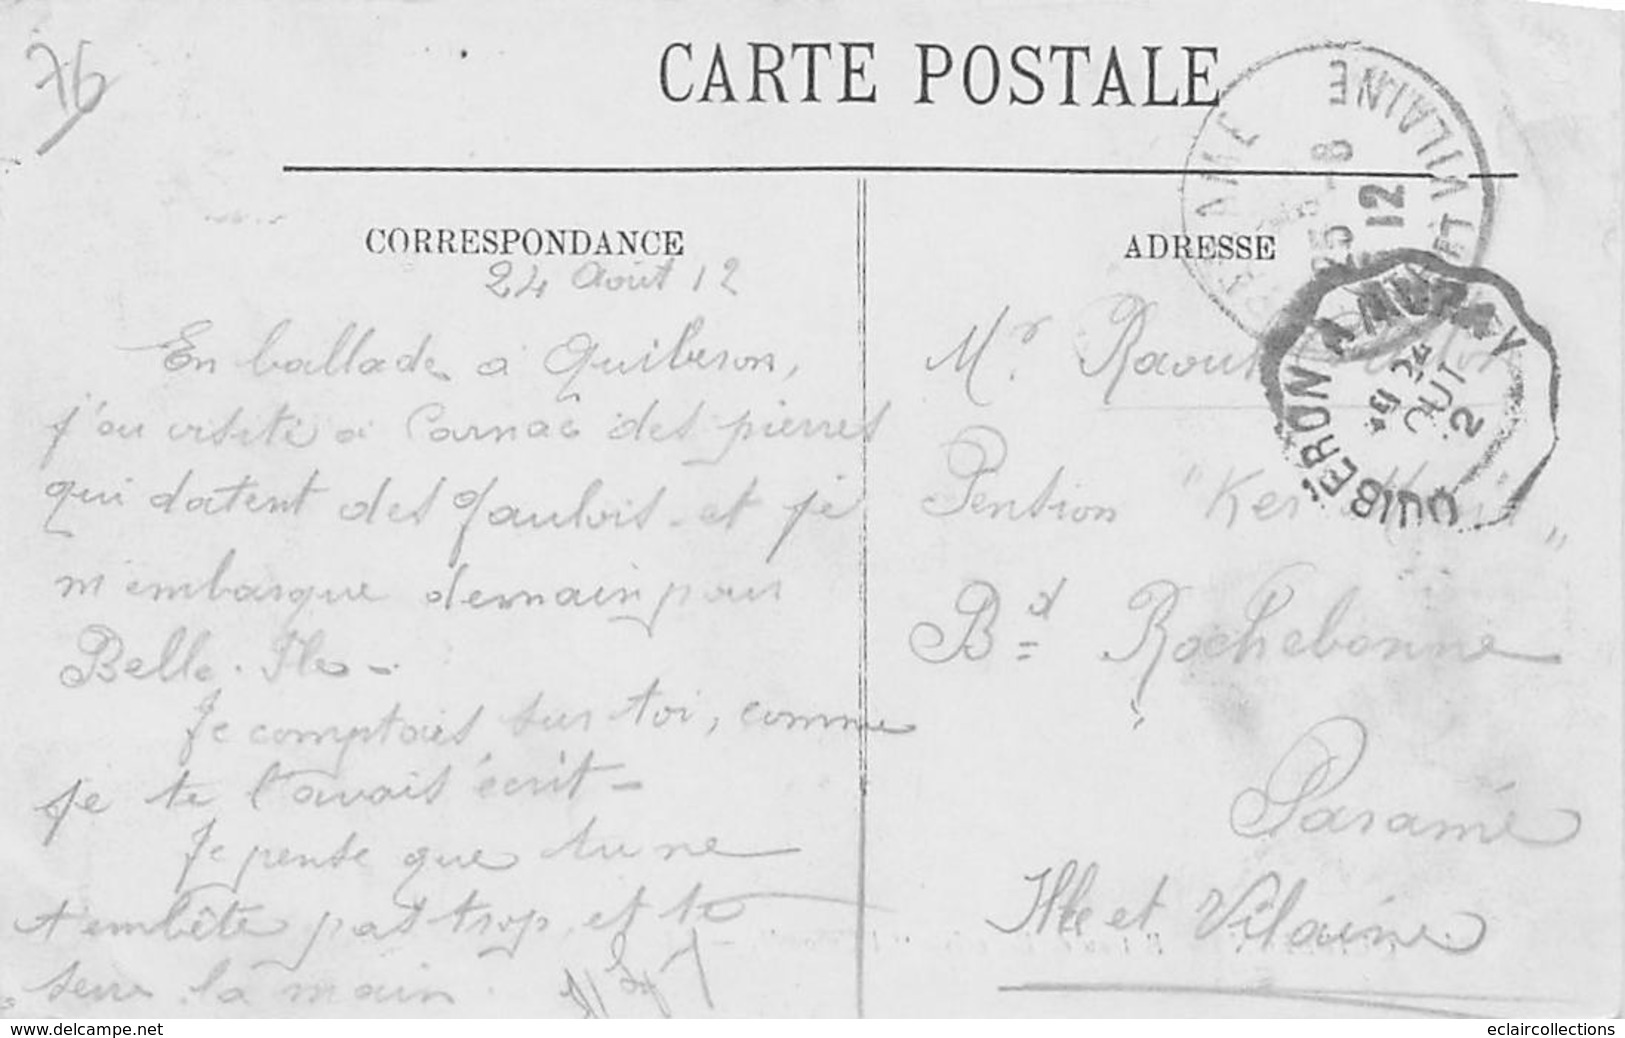 76
CARTE POSTALE
CORRESPONDANCE
24 Août 12
En ballade à Quiberon,
j'ai visité à Carnac des pierres
qui datent des Gaulois et je
m'embarque demain pour
Belle-Ile -
Je comptais sur toi, comme
je te l'avais écrit -
Je pense que tu ne
t'embête pas trop, et te
serre la main.
ADRESSE
Mr. Raoul
Pension "Ker
Bd Rochebonne
Paramé
Ille et Vilaine
ET VILAINE
25 -8
12
QUIBERON A AURAY
24
AOUT
12
www.delcampe.net
eclaircollections